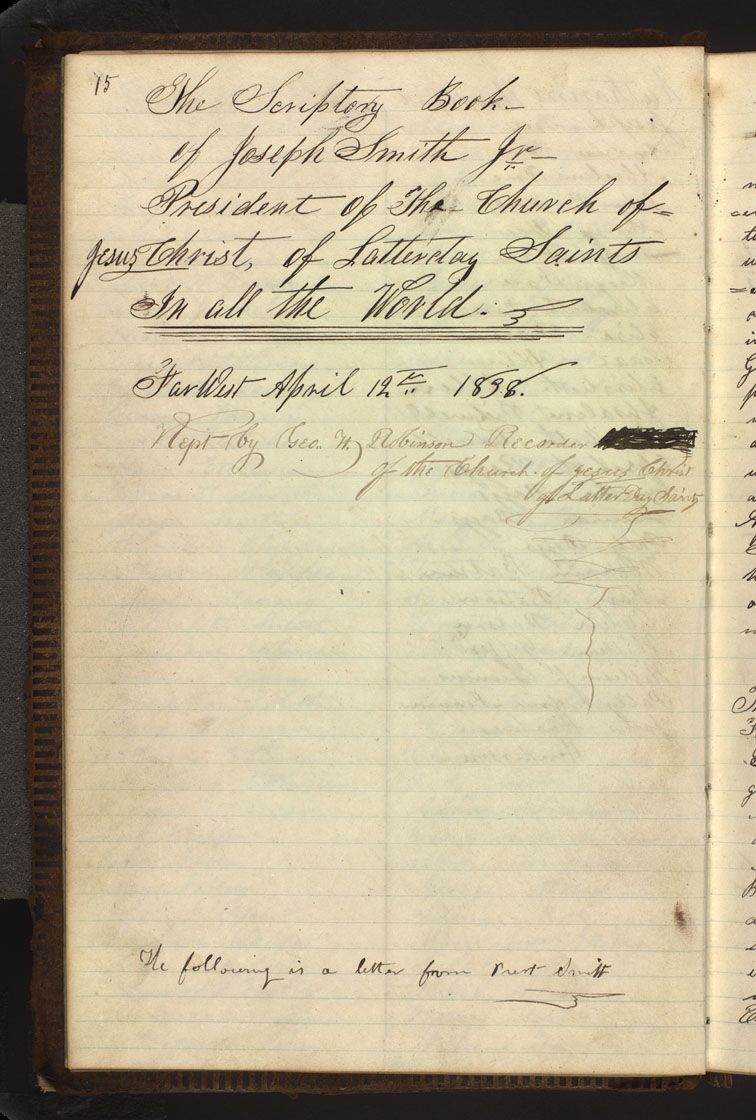 15
The Scriptory Book—
of Joseph Smith Jr—
President of The Church of=
Jesus Christ, of Latterday Saints
In all the World.
Far West April 12th 1838.
Kept by Geo. W. Robinson Recorder
of the Church of Jesus Christ
of Latter Day Saints
The following is a letter from Prest Smith